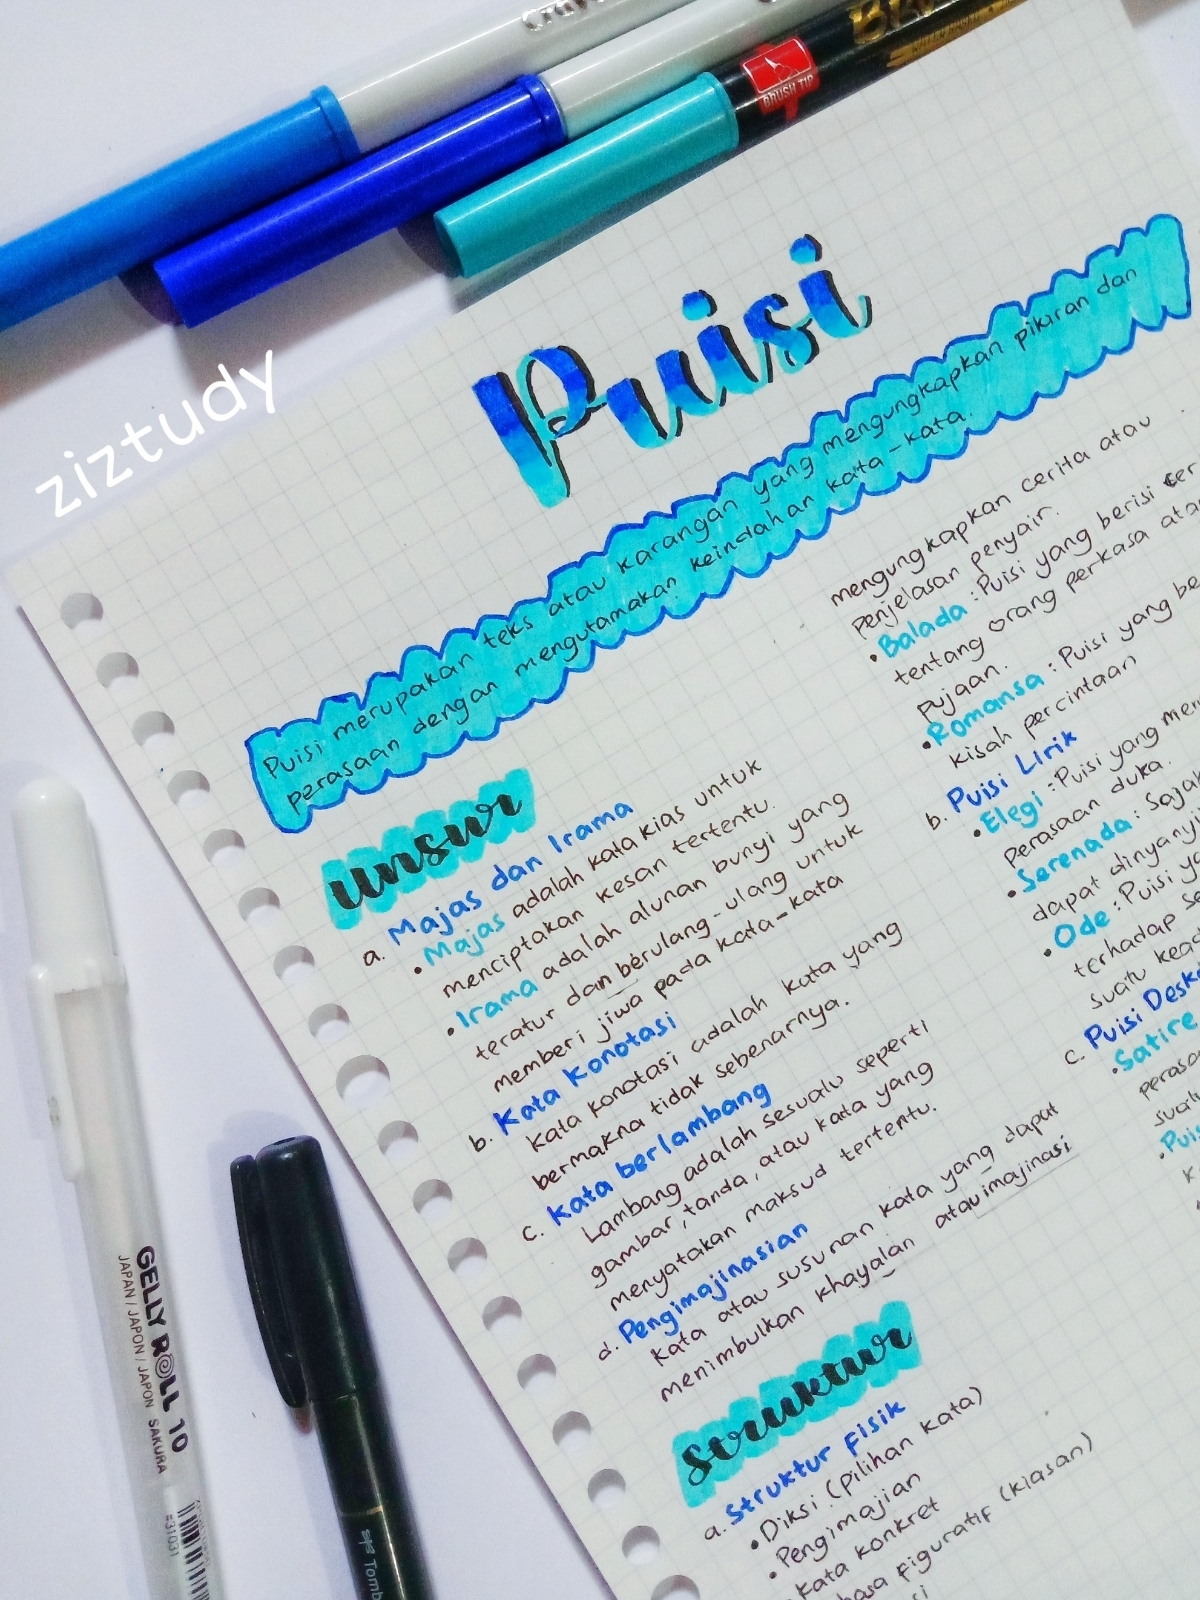 Cray
BRUSH TIP
ziztudy
Puisi
Puisi merupakan teks atau karangan yang mengungkapkan pikiran dan
perasaan dengan mengutamakan keindahan kata-kata.
unsur
a. Majas dan Irama
• Majas adalah kata kias untuk
menciptakan kesan tertentu.
• Irama adalah alunan bunyi yang
teratur dan berulang-ulang untuk
memberi jiwa pada kata-kata
b. Kata Konotasi
Kata konotasi adalah kata yang
bermakna tidak sebenarnya.
c. Kata berlambang
Lambang adalah sesuatu seperti
gambar, tanda, atau kata yang
menyatakan maksud tertentu.
d. Pengimajinasian
Kata atau susunan kata yang dapat
menimbulkan khayalan atau imajinasi
struktur
a. Struktur Fisik
• Diksi (pilihan kata)
• Pengimajian
• Kata konkret
figuratif (kiasan)
mengungkapkan cerita atau
penjelasan penyair.
• Balada : Puisi yang berisi
tentang orang perkasa
pujaan.
• Romansa : Puisi yang
kisah percintaan
b. Puisi Lirik
• Elegi : Puisi yang
perasaan duka.
• Serenada : Sajak
dapat
• Ode : Puisi
terhadap
suatu
c. Puisi
• Satire
GELLY ROLL 10
JAPAN / JAPON / JAPON SAKURA
#31031
Tomb